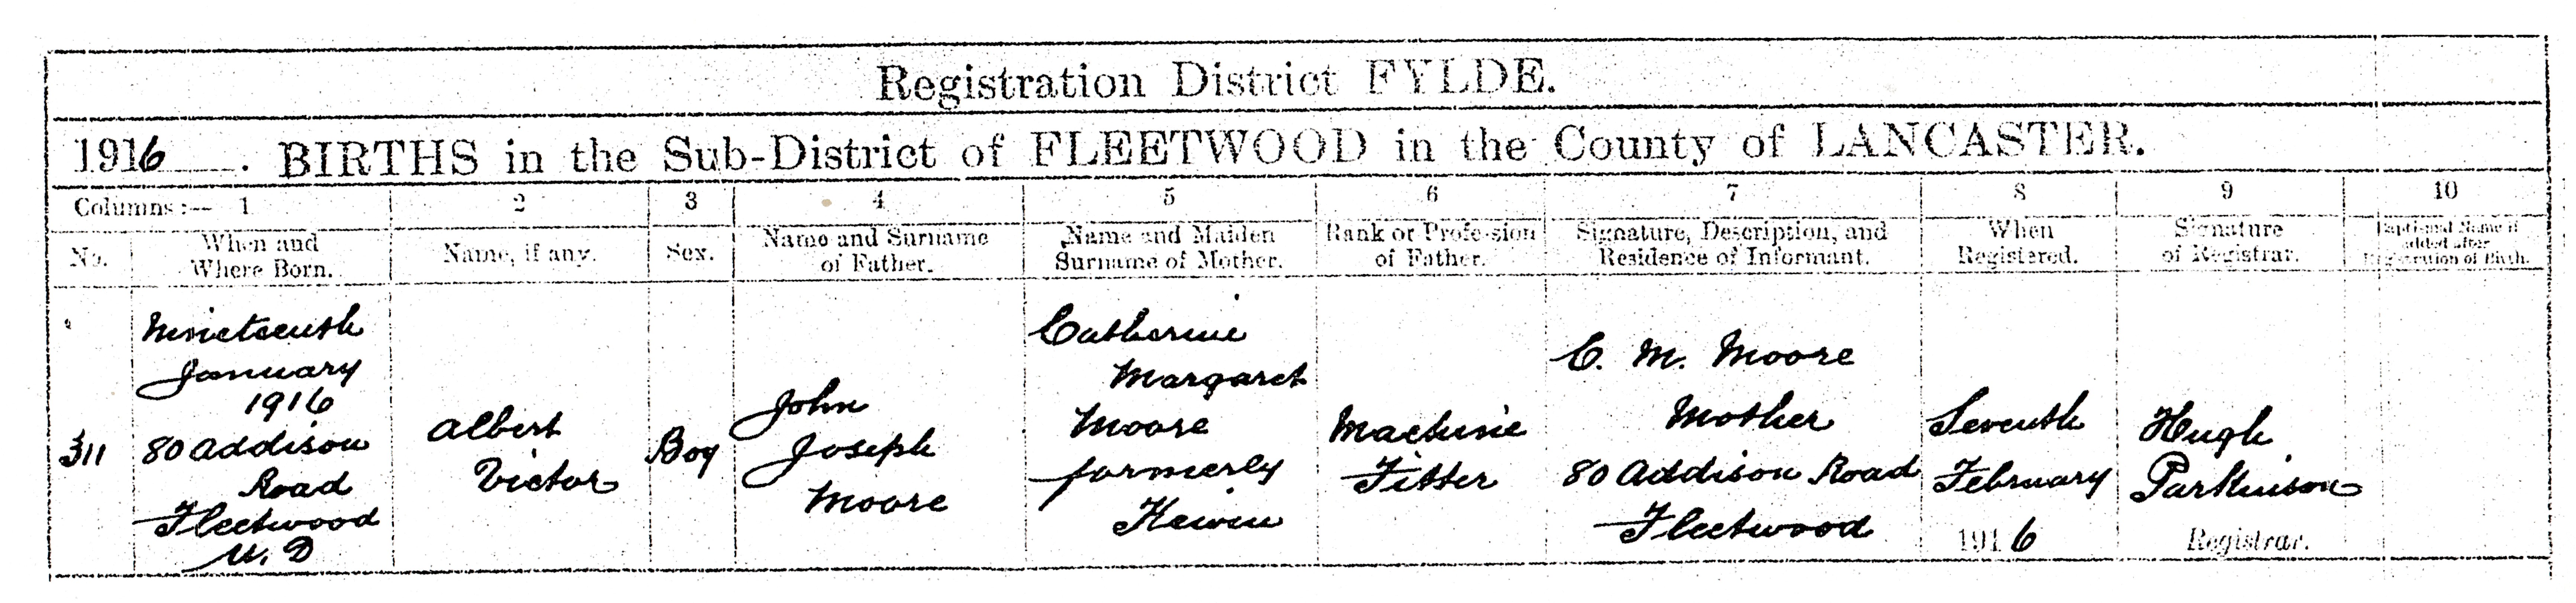 Registration District FYLDE.
1916 . BIRTHS in the Sub-District of FLEETWOOD in the County of LANCASTER.
Columns:— 1 2 3 4 5 6 7 8 9 10
No.
When and
Where Born.
Name, if any.
Sex.
Name and Surname
of Father.
Name and Maiden
Surname of Mother.
Rank or Profession
of Father.
Signature, Description, and
Residence of Informant.
When
Registered.
Signature
of Registrar.
Baptismal Name if
added after
Registration of Birth.
311
Nineteenth
January
1916
80 Addison
Road
Fleetwood
U. D
Albert
Victor
Boy
John
Joseph
Moore
Catherine
Margaret
Moore
formerly
Machine
Fitter
C. M. Moore
Mother
80 Addison Road
Fleetwood
Seventh
February
1916
Hugh
Parkinson
Registrar.